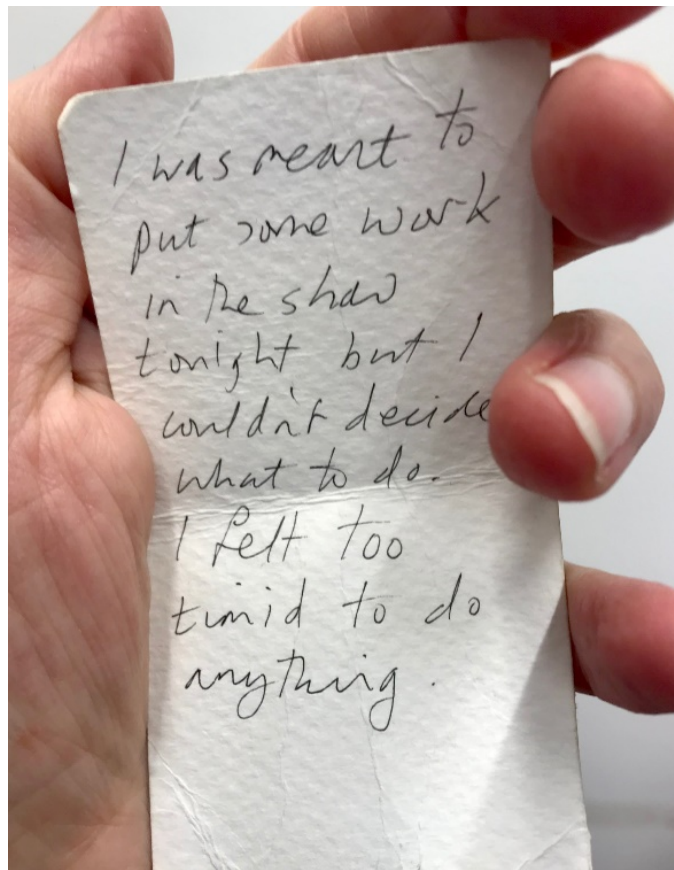 I was meant to
put some work
in the show
tonight but I
couldn't decide
what to do.
I felt too
timid to do
anything.